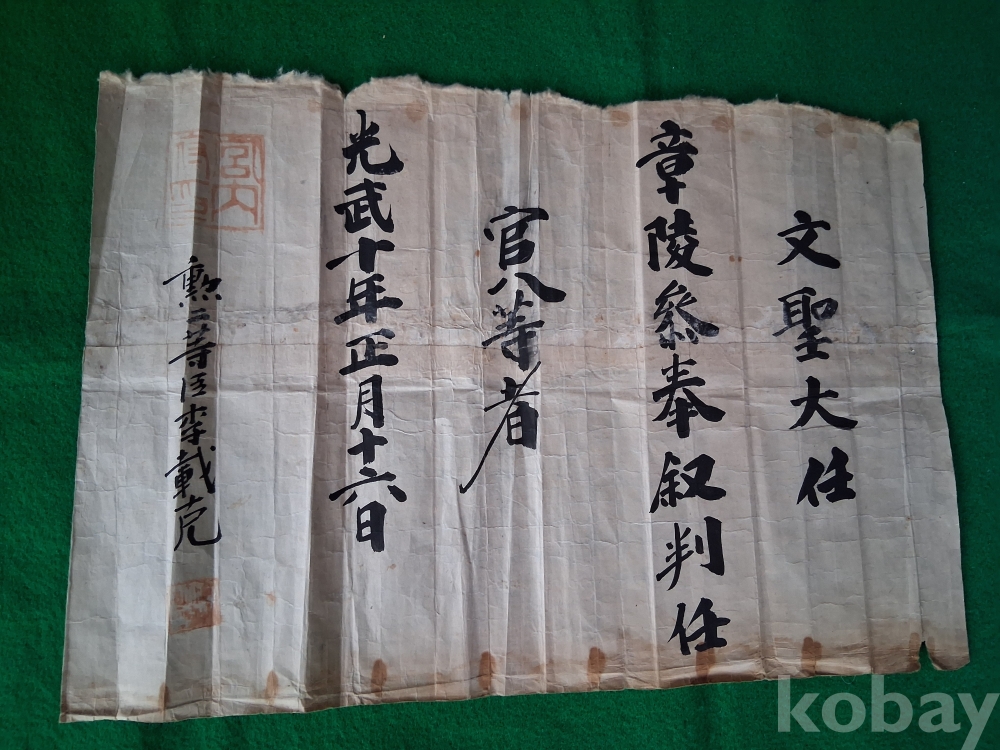 文聖大任
章陵叅奉叙判任
官八等者
光武十年正月十六日
勲二等臣李載克
kobay